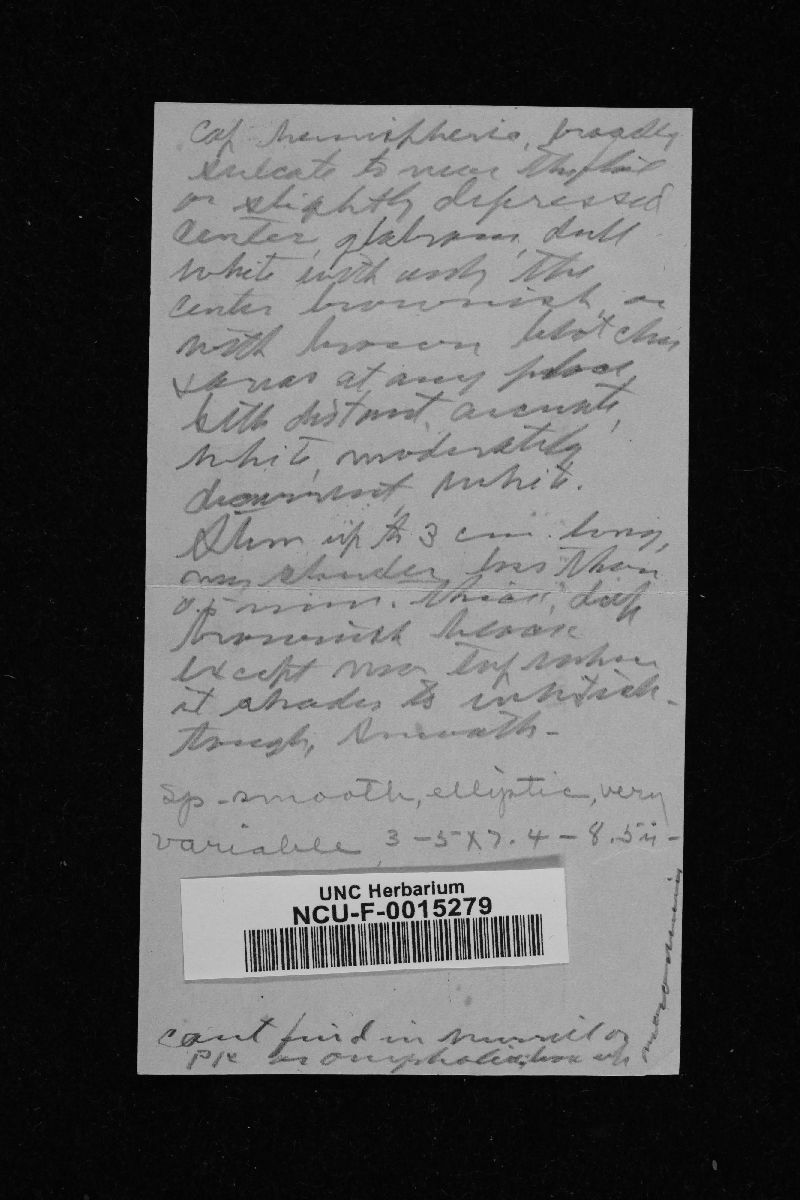 Cap hemispheric, broadly
sulcate to near the
or slightly depressed
center, glabrous, dull
white with only the
center brownish, or
with brown blotches
areas at any place,
Gills distant, arcuate,
white, moderately
decurrent, white.
Stem up to 3 cm. long,
very slender, less than
0.5 mm. thick, deep
brownish black
except near top where
it shades to whitish -
tough, smooth -
Sp - smooth, elliptic, very
variable, 3 - 5 x 7.4 - 8.5 µ -
UNC Herbarium
NCU-F-0015279
can't find in Murrill or
Pk as omphalia